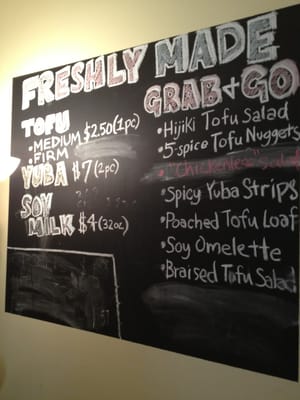 FRESHLY MADE
TOFU
• MEDIUM $2.50 (1pc)
• FIRM
YUBA $7 (2pc)
SOY
MILK $4 (32oz)
GRAB + GO
• Hijiki Tofu Salad
• 5-spice Tofu Nuggets
• "Chickenless" Salad
• Spicy Yuba Strips
• Poached Tofu Loaf
• Soy Omelette
• Braised Tofu Salad